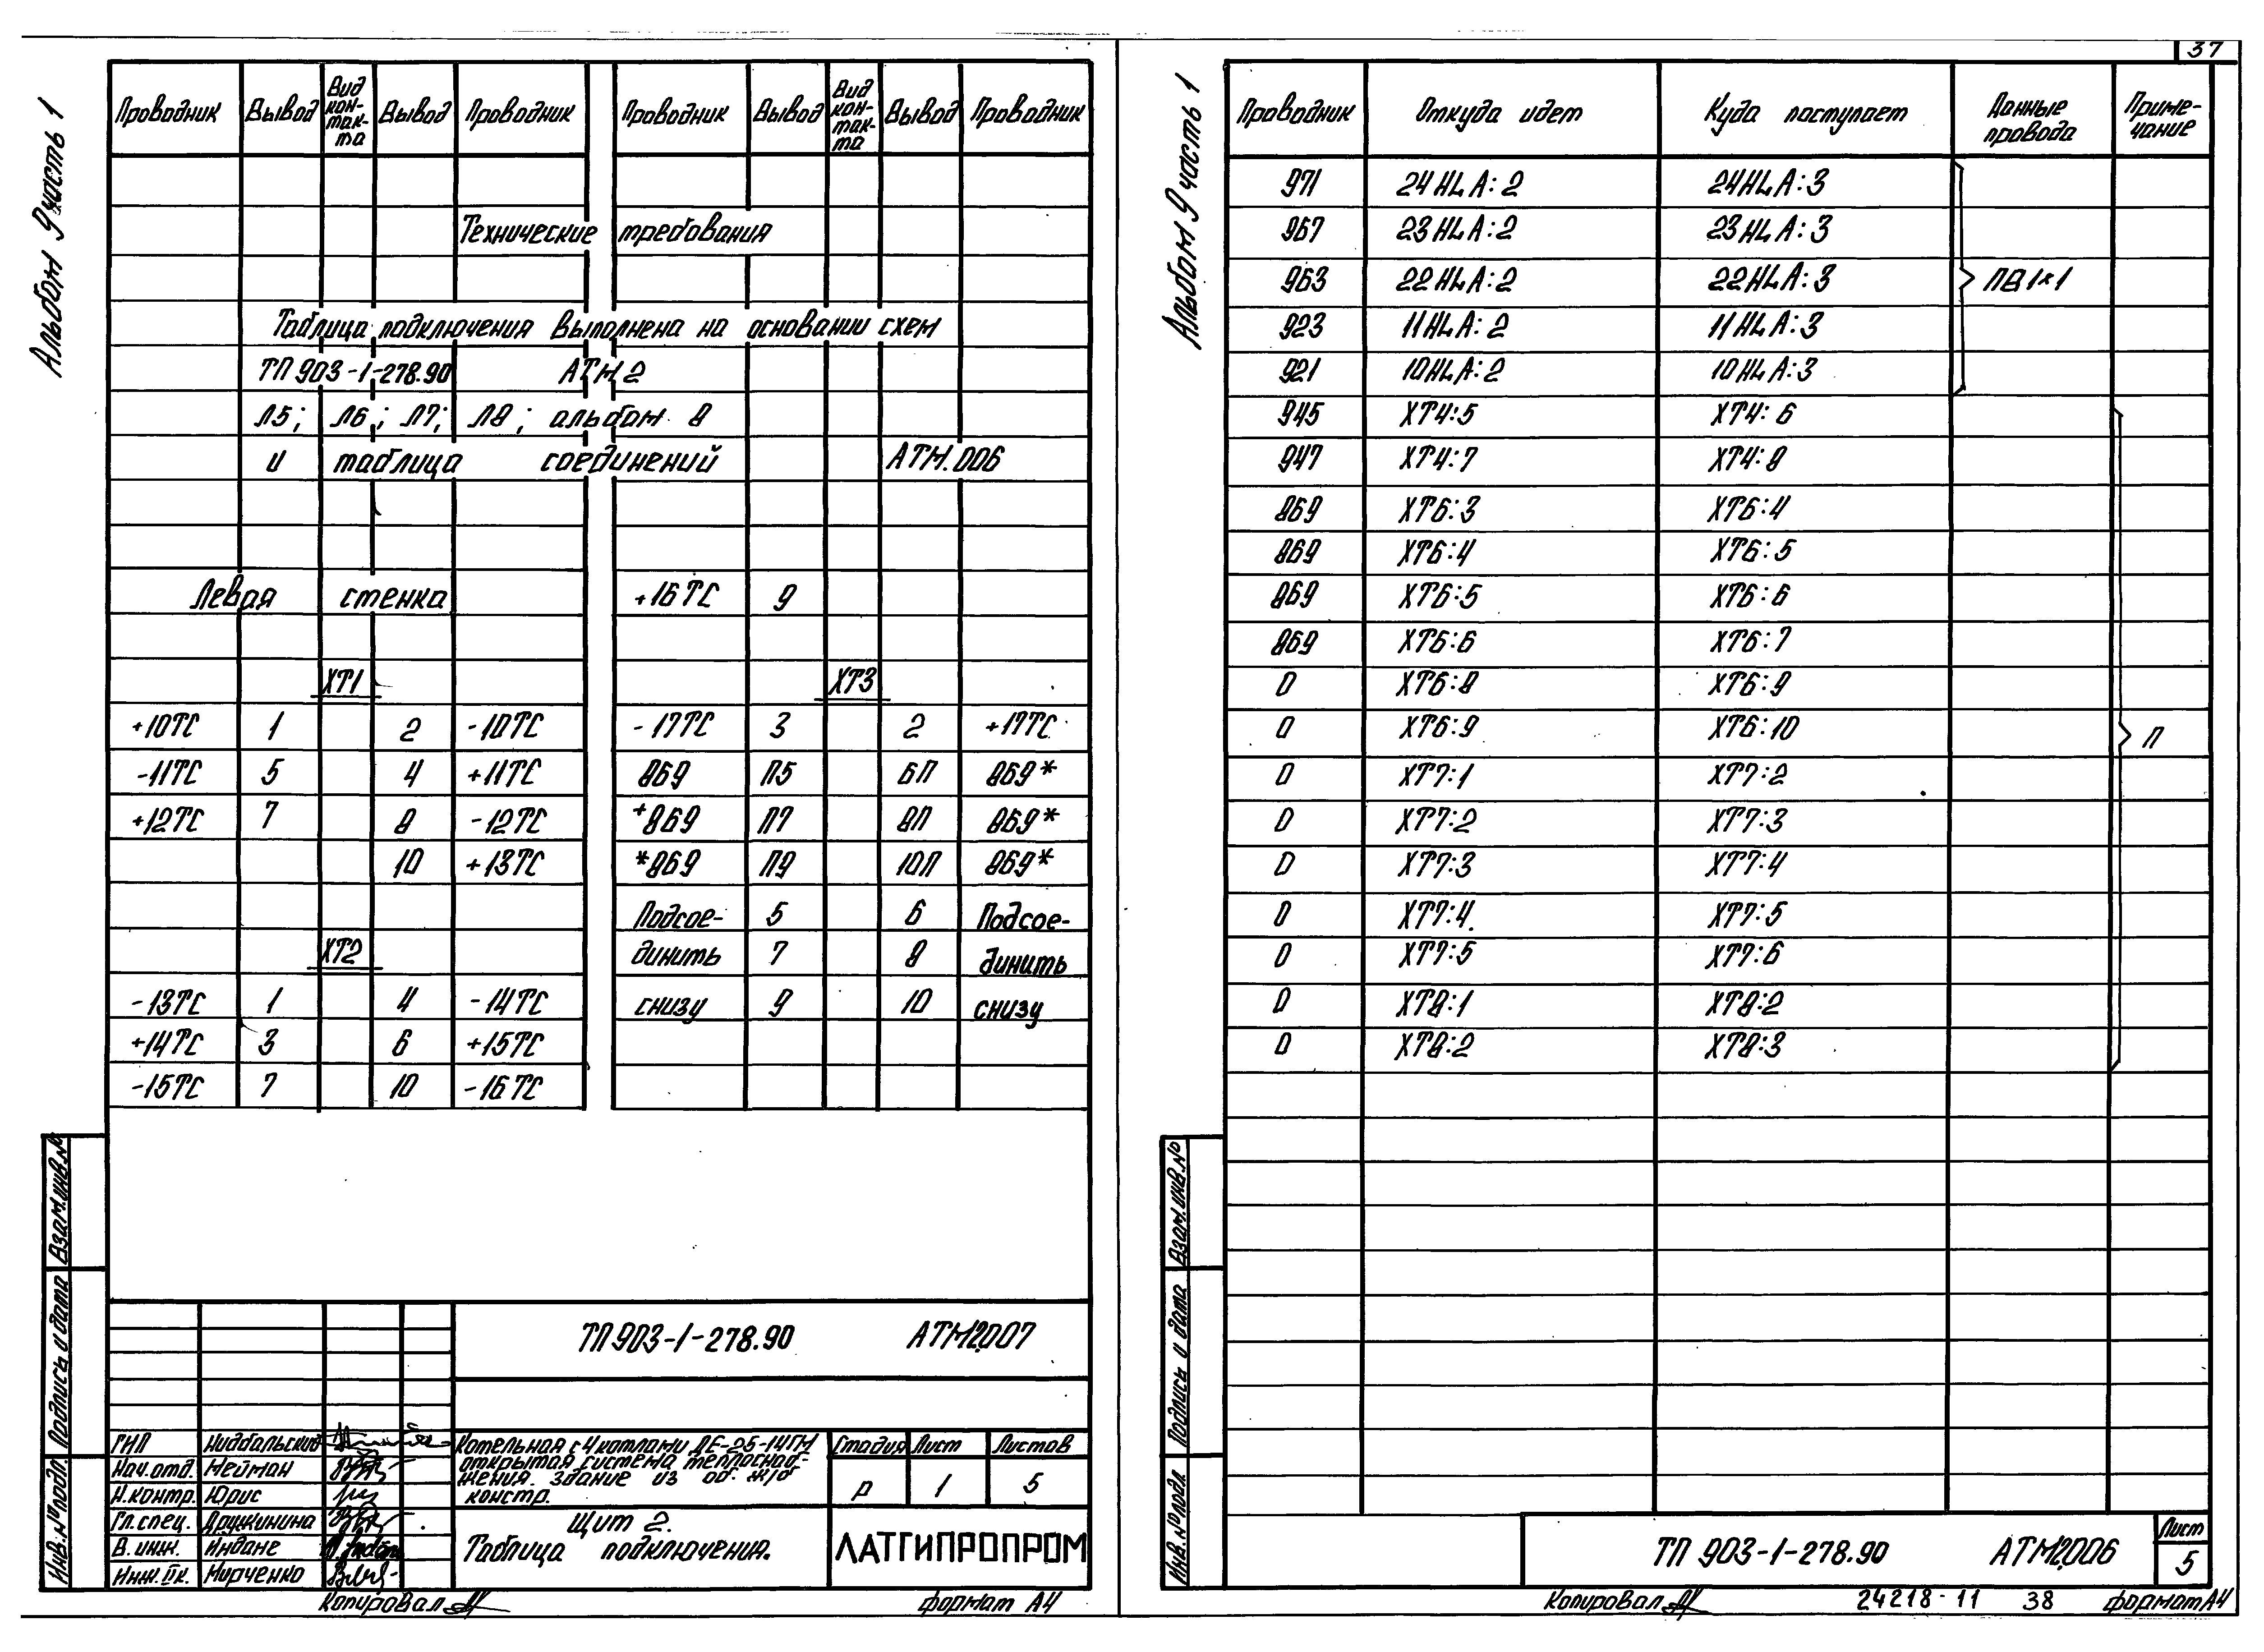 37
Альбом 9 часть 1
Проводник Вывод Вид контакта Вывод Проводник Проводник Вывод Вид контакта Вывод Проводник
Технические требования
Таблица подключения выполнена на основании схем
ТП 903-1-278.90 АТМ2
Л5; Л6; Л7; Л8; альбом 8
и таблица соединений АТМ.006
Левая стенка +16ТС 9
ХТ1 ХТ3
+10ТС 1 2 -10ТС -17ТС 3 2 +17ТС
-11ТС 5 4 +11ТС 869 П5 6П 869*
+12ТС 7 8 -12ТС +869 П7 8П 869*
10 +13ТС *869 П9 10П 869*
Подсое- 5 6 Подсое-
ХТ2 динить 7 8 динить
-13ТС 1 4 -14ТС снизу 9 10 снизу
+14ТС 3 6 +15ТС
-15ТС 7 10 -16ТС
Взам.инв.№
Подпись и дата
Инв.№ подл.
ТП 903-1-278.90 АТМ2.007
ГИП
Нач.отд. Нейман
Н.контр. Юрис
Гл.спец. Дружинина
В. инж. Индане
Инж. IIк. Мирченко
Котельная с 4 котлами ДЕ-25-14ГМ
открытая система теплоснаб-
жения. Здание из сб. ж/б
констр.
Стадия Лист Листов
Р 1 5
Щит 2.
Таблица подключения.
ЛАТГИПРОПРОМ
Копировал формат А4
Альбом 9 часть 1
Проводник Откуда идет Куда поступает Данные провода Приме-чание
971 24HLA:2 24HLA:3
967 23HLA:2 23HLA:3
963 22HLA:2 22HLA:3 ПВ 1×1
923 11HLA:2 11HLA:3
921 10HLA:2 10HLA:3
945 ХТ4:5 ХТ4:6
947 ХТ4:7 ХТ4:8
869 ХТ6:3 ХТ6:4
869 ХТ6:4 ХТ6:5
869 ХТ6:5 ХТ6:6
869 ХТ6:6 ХТ6:7
0 ХТ6:8 ХТ6:9
0 ХТ6:9 ХТ6:10 П
0 ХТ7:1 ХТ7:2
0 ХТ7:2 ХТ7:3
0 ХТ7:3 ХТ7:4
0 ХТ7:4 ХТ7:5
0 ХТ7:5 ХТ7:6
0 ХТ8:1 ХТ8:2
0 ХТ8:2 ХТ8:3
Взам.инв.№
Подпись и дата
Инв.№ подл.
ТП 903-1-278.90 АТМ2.006
Лист
5
Копировал 24218-11 38 формат А4